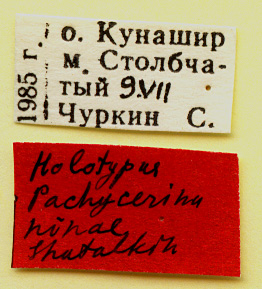 1985 г.
о. Кунашир
м. Столбча-
тый 9.VII
Чуркин С.
Holotypus
Pachycerina
ninae
Shatalkin